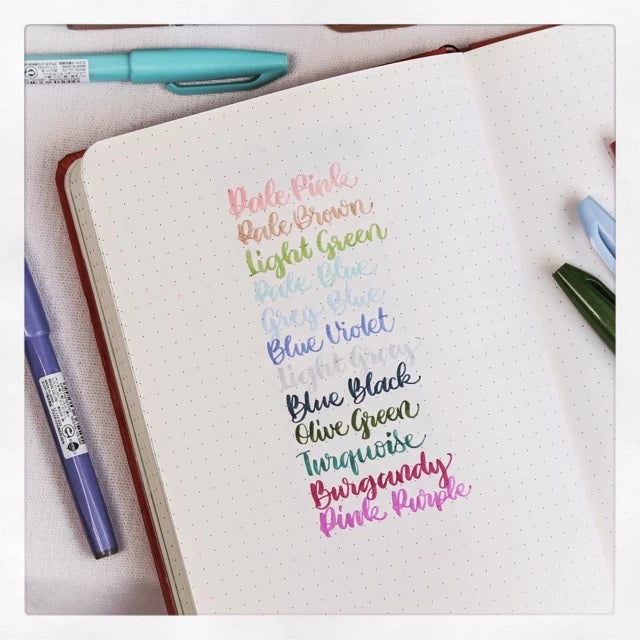 Pale Pink
Pale Brown
Light Green
Pale Blue
Grey Blue
Blue Violet
Light Grey
Blue Black
Olive Green
Turquoise
Burgandy
Pink Purple